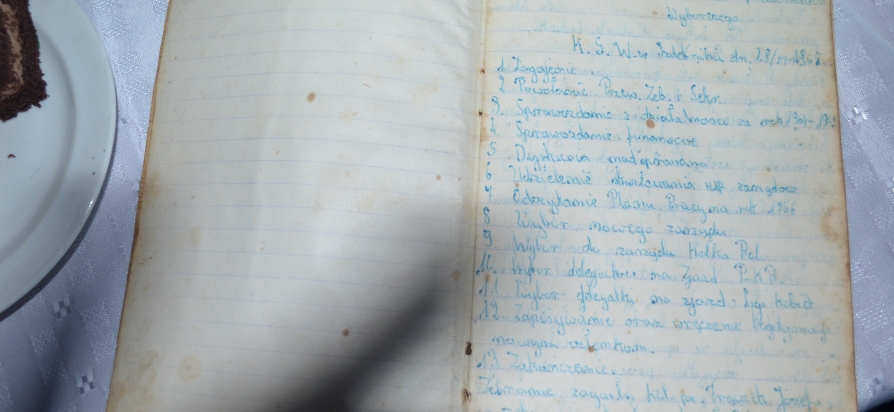 Wyborczego
K. G. W. w dn. 28/
1. Zagajenie
2. Powołanie Przew. Zeb. i Sekr.
3. Sprawozdanie z działalności za rok
4. Sprawozdanie finansowe
5. Dyskusja nad
6. Udzielenie zarządowi
7. Odczytanie Planu Pracy na rok 1966
8. Wybór nowego zarządu
9. Wybór do zarządu Kółka Rol.
10. Wybór delegatek na Zjazd P.K.R.
11. Wybór delegatki na zjazd Ligi Kobiet
12. Zapisywanie oraz wręczenie legitymacji
nowym członkom.
13 Zakończenie.
Zebranie zagaiła kol. Józefa